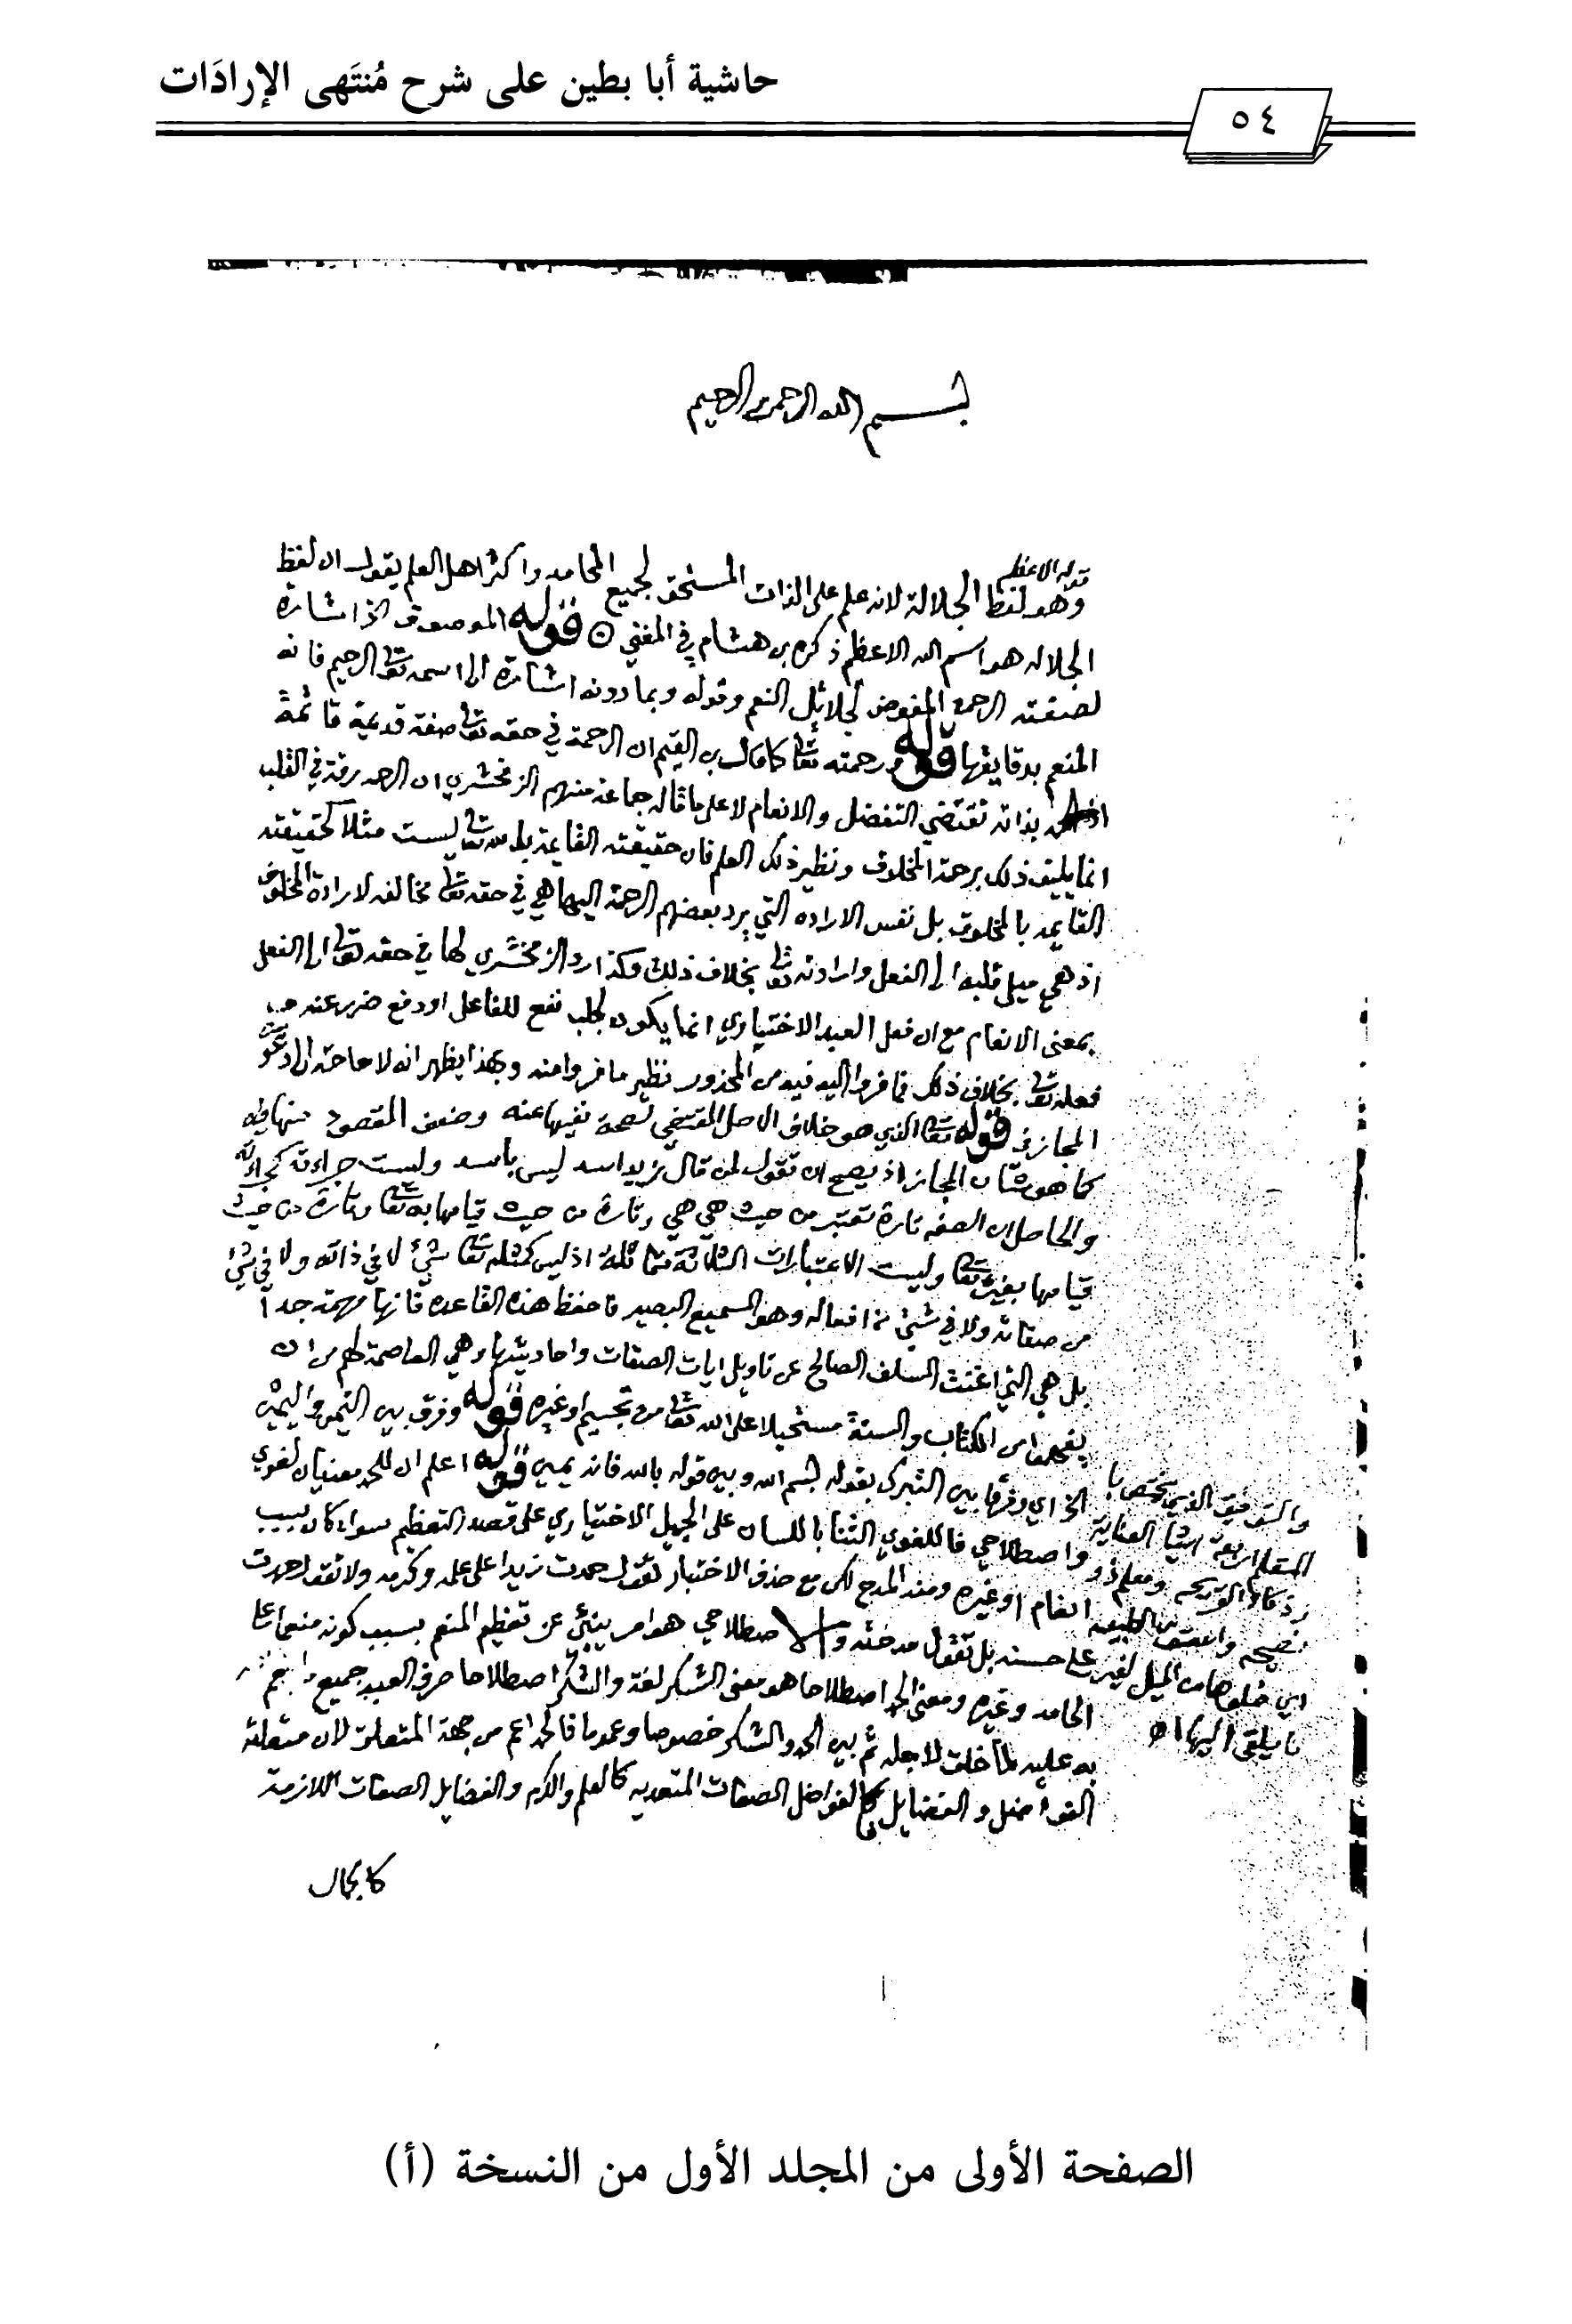 حاشية أبا بطين على شرح مُنتَهى الإرادَات
٥٤
بسم الله الرحمن الرحيم
قوله الاعظم
وهو لفظ الجلالة لانه علم على الذات المستحق لجميع المحامد واكثر اهل العلم يقول ان لفظ
الجلاله هو اسم الله الاعظم ذكره بن هشام في المغني قوله الموصوف الخ اشارة
لصفته الرحمن المفيض لجلائل النعم وقوله وبما دونه اشارة الى اسمه تعا الرحيم فانه
المنعم بدقايقها قوله ورحمته تعا كما قال بن القيم ان الرحمة في حقه تعا صفة قديمة قائمة
بذاته تقتضي التفضل والانعام لا على ما قاله جماعة منهم الزمخشري ان الرحمه رقة في القلب
انما يليق ذلك برحمة المخلوق ونظير ذلك العلم فان حقيقته القايمة بالله تعا ليست مثلا كحقيقته
القايمه بالمخلوق بل نفس الاراده التي يرد بعضهم الرحمة اليها هي في حقه تعا مخالفه لارادة المخلوق
اذ هي ميل قلبه الى الفعل وارادته تعا بخلاف ذلك وكذا رد الزمخشري لها في حقه تعا الى الفعل
بمعنى الانعام مع ان فعل العبد الاختياري انما يكون لجلب نفع للفاعل او دفع ضرر عنه
فعله تعا بخلاف ذلك فما فروا اليه فيه من المحذور نظير ما فروا منه وبهذا يظهر انه لا حاجة الى دعوى
المجاز في قوله تعا الذي هو خلاف الاصل المقتضي لصحة نفيها عنه وضعف المقصود منها فيه
كما هو شان المجاز اذ يصح ان تقول لمن قال زيد اسد ليس باسد وليست جراءته كجراءته
والحاصل ان الصفه تارة تعتبر من حيث هي هي وتارة من حيث قيامها به تعا وتارة من حيث
قيامها بغيره تعا وليست الاعتبارات الثلاثة متماثلة اذ ليس كمثله تعا شيئ لا في ذاته ولا في شيئ
من صفاته ولا في شيئ من افعاله وهو السميع البصير فاحفظ هذه القاعده فانها مهمة جدا
بل هي التي اغنت السلف الصالح عن تاويل ايات الصفات واحاديثها وهي العاصمة لهم من ان
يفهموا من الكتاب والسنة مستحيلا على الله تعا من تجسيم او غيره قوله وفرق بين التيمن واليمين
الخ اي وفرقا بين التبرك بقوله بسم الله وبين قوله بالله فانه يمين قوله اعلم ان للحمد معنيان لغوي
واصطلاحي فاللغوي الثنا باللسان على الجميل الاختياري على قصد التعظيم سواء كان بسبب
انعام او غيره ومنه المدح لكن مع حذف الاختيار تقول حمدت زيدا على علمه وكرمه ولا تقول حمدت
على حسنه بل تقول مدحته والاصطلاحي هو امر ينبئ عن تعظيم المنعم بسبب كونه منعما على
الحامد وغيره ومعنى الحمد اصطلاحا هو معنى الشكر لغة والشكر اصطلاحا صرف العبد جميع ما انعم
به عليه لما خلق لاجله ثم بين الحمد والشكر خصوصا وعموما فالحمد اعم من جهة المتعلق لان متعلقه
الفواضل والفضايل فالفواضل الصفات المتعديه كالعلم والكرم والفضايل الصفات اللازمة
كالجمال
والتوفيق الذي يختص با
المتعلم اربعة اشيا العناية
ذكاء القريحه ومعلم ذو
نصيحه واستقامة الطبيعه
اي خلوها من الميل لغير
ما يلقى اليها اه
الصفحة الأولى من المجلد الأول من النسخة (أ)